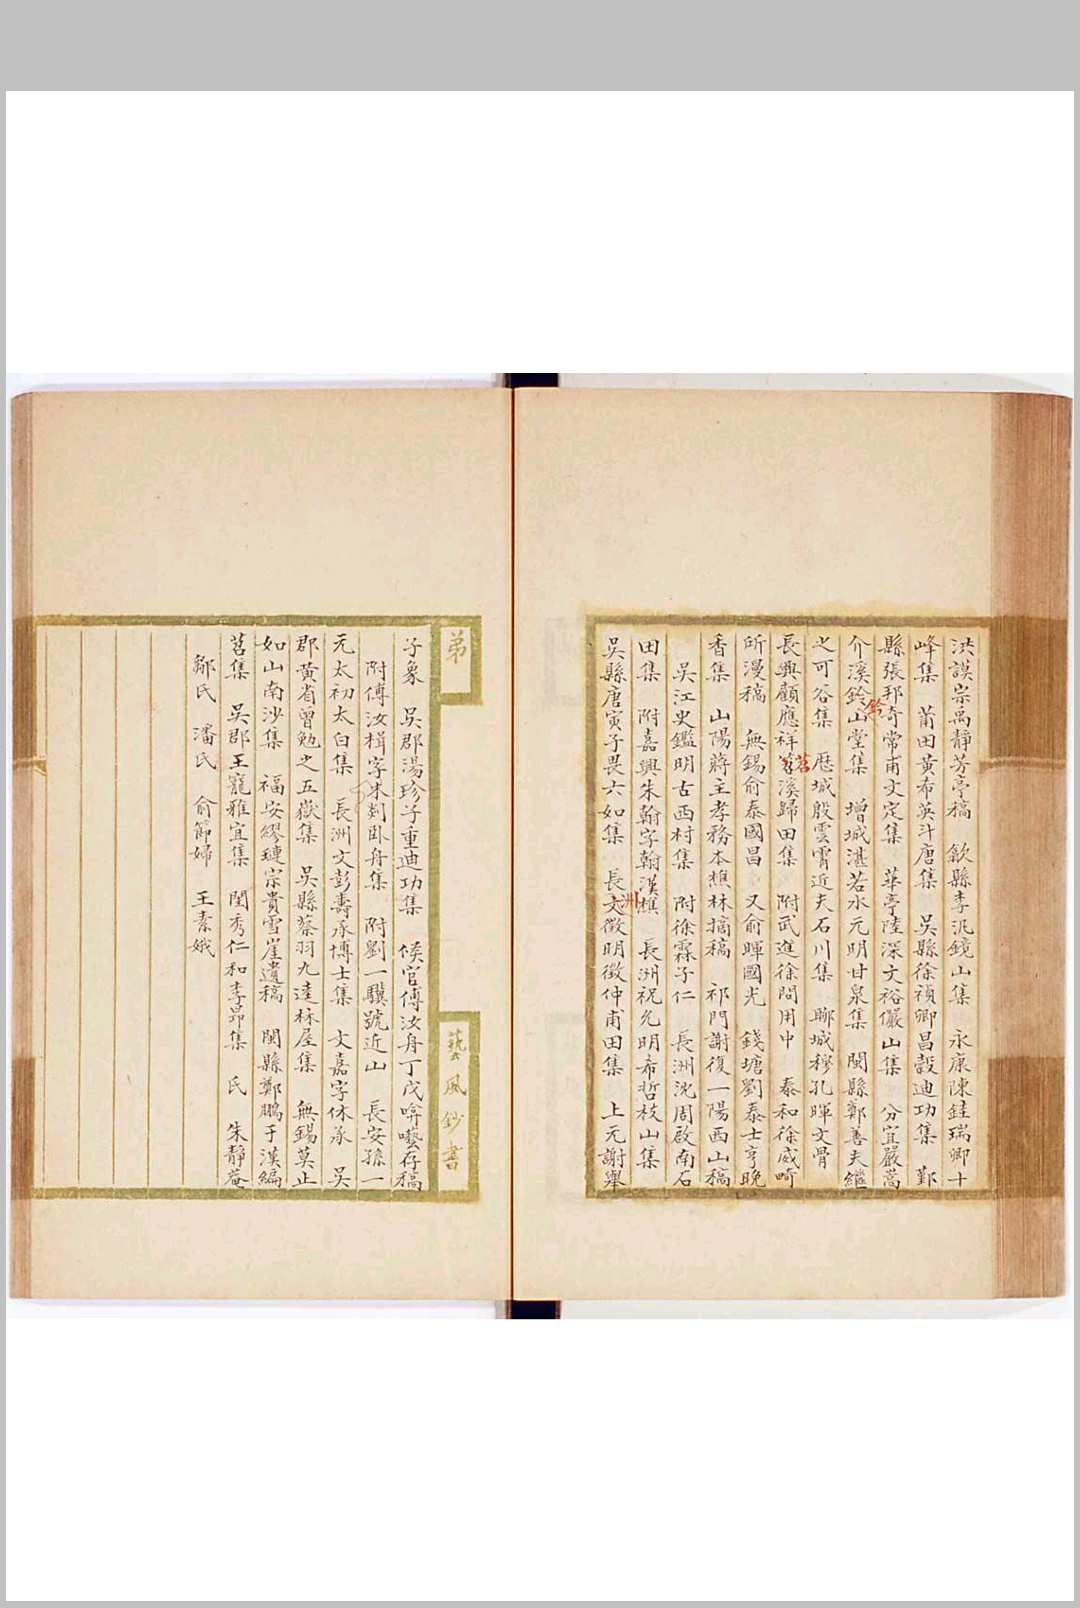 洪謨崇禹靜芳亭稿　歙縣李汎鏡山集　永康陳銈瑞卿十
峰集　莆田黃希英斗唐集　吳縣徐禎卿昌穀迪功集　鄞
縣張邦奇常甫文定集　華亭陸深文裕儼山集　分宜嚴嵩
介溪鈐山堂集　增城湛若水元明甘泉集　閩縣鄭善夫繼
鈐
之可谷集　歷城殷雲霄近夫石川集　聊城穆孔暉文骨
長興顧應祥箬溪歸田集　附武進徐問用中　泰和徐威畸
苕
所漫稿　無錫俞泰國昌　又俞暉國光　錢塘劉泰士亨晚
香集　山陽蔣主孝務本樵林摘稿　祁門謝復一陽西山稿
吳江史鑑明古西村集　附徐霖子仁　長洲沈周啟南石
田集　附嘉興朱翰字翰漢樵　長洲祝允明希哲枝山集
吳縣唐寅子畏六如集　長文徵明徵仲甫田集　上元謝舉
洲
弟
藝風鈔書
子象　吳郡湯珍子重迪功集　候官傅汝舟丁戊啽囈存稿
附傅汝楫字木剡臥舟集　附劉一驥號近山　長安孫一
元太初太白集　長洲文彭壽承博士集　文嘉字休承　吳
郡黃省曾勉之五嶽集　吳縣蔡羽九逵林屋集　無錫莫止
如山南沙集　福安繆璉宗貴雪崖遺稿　閩縣鄭鵬于漢編
苕集　吳郡王寵雅宜集　閨秀仁和李昂集　氏　朱靜菴
鄒氏　潘氏　俞節婦　王素娥